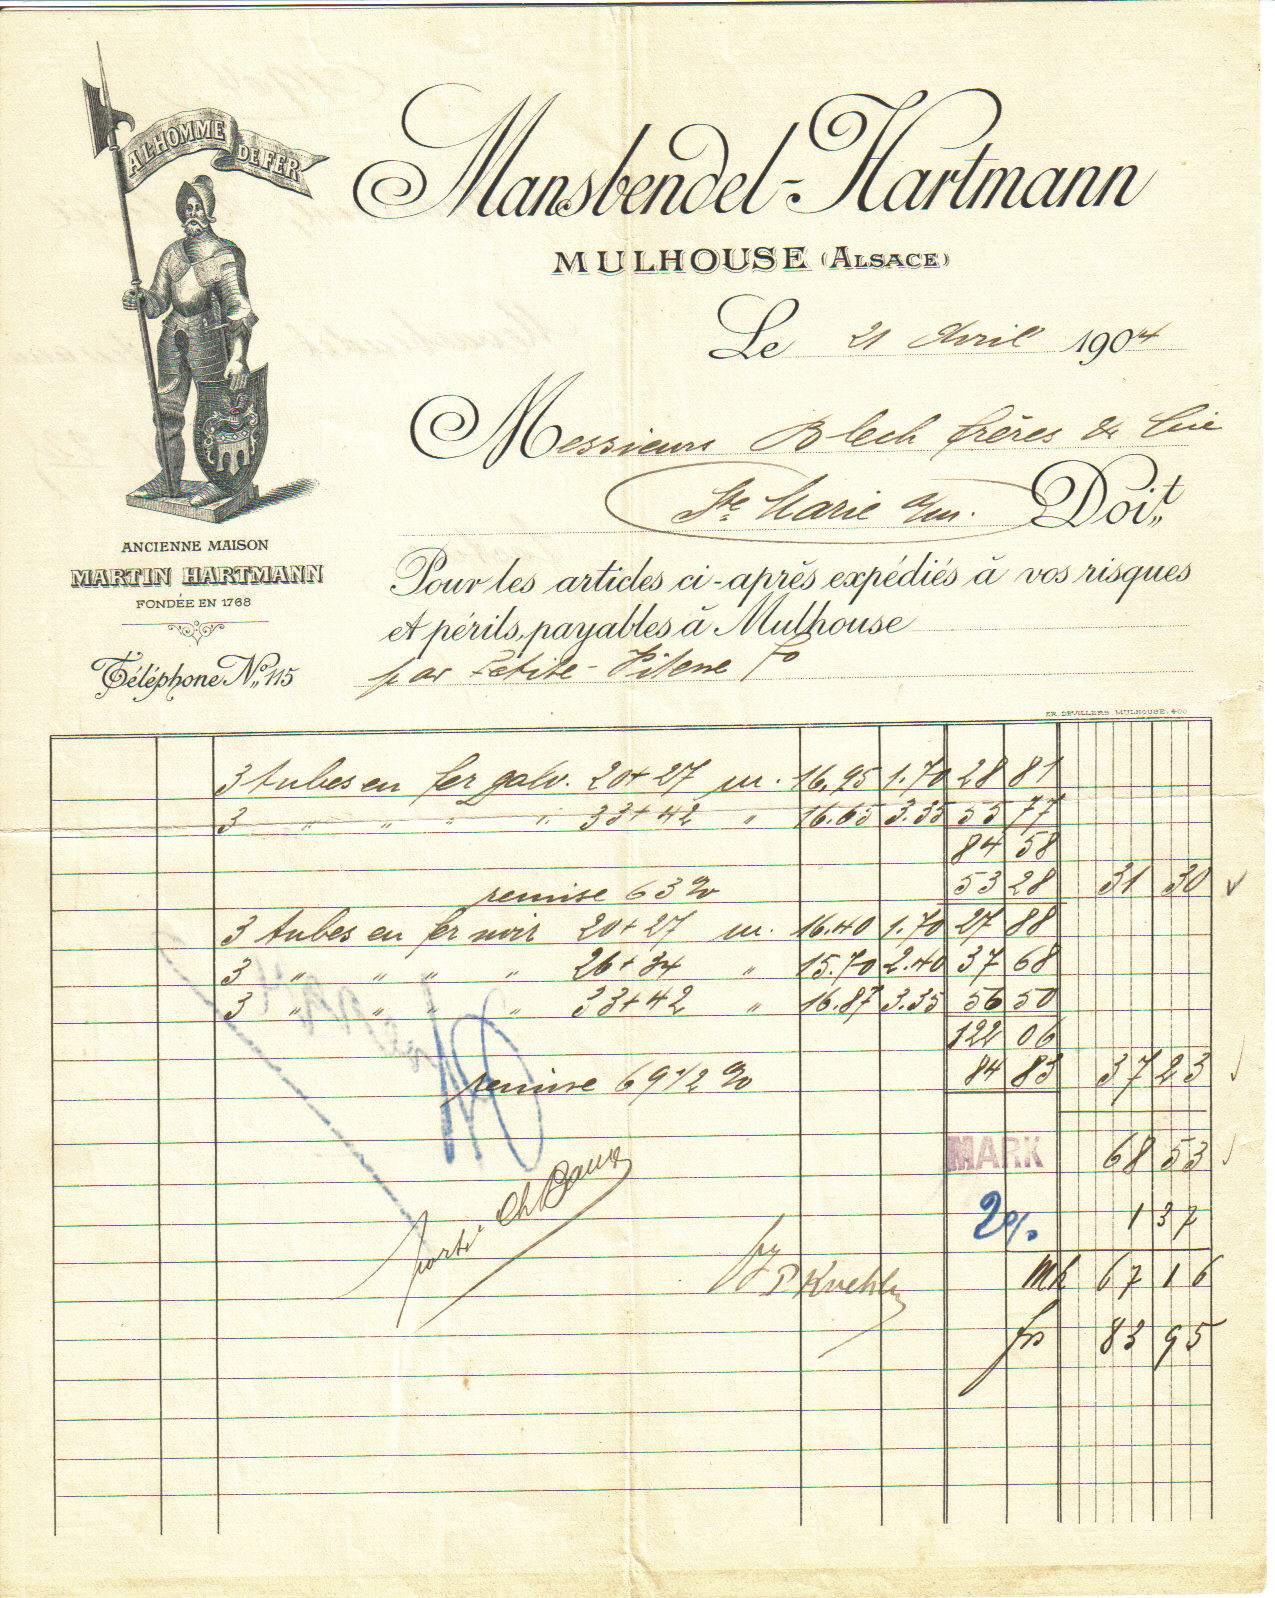 A L'HOMME DE FER
Mansbendel-Hartmann
MULHOUSE (ALSACE)
Le 21 Avril 1904
Messieurs Blech frères & Cie
Ste Marie a/m. Doit
ANCIENNE MAISON
MARTIN HARTMANN
FONDÉE EN 1768
Téléphone No. 115
Pour les articles ci-après expédiés à vos risques
et périls, payables à Mulhouse
par Petite-Vitesse fo
FR. DEVILLERS MULHOUSE. 400
3 tubes en fer galv. 20+27 m. 16.95 1.70 28 81
3 " " " " 33+42 " 16.65 3.35 55 77
84 58
remise 63% 53 28 31 30
3 tubes en fer noir 20+27 m. 16.40 1.70 27 88
3 " " " " 26+34 " 15.70 2.40 37 68
3 " " " " 33+42 " 16.87 3.35 56 50
122 06
remise 69 1/2 % 84 83 37 23
MARK 68 53
2% 1 37
Mk 67 16
frs 83 95